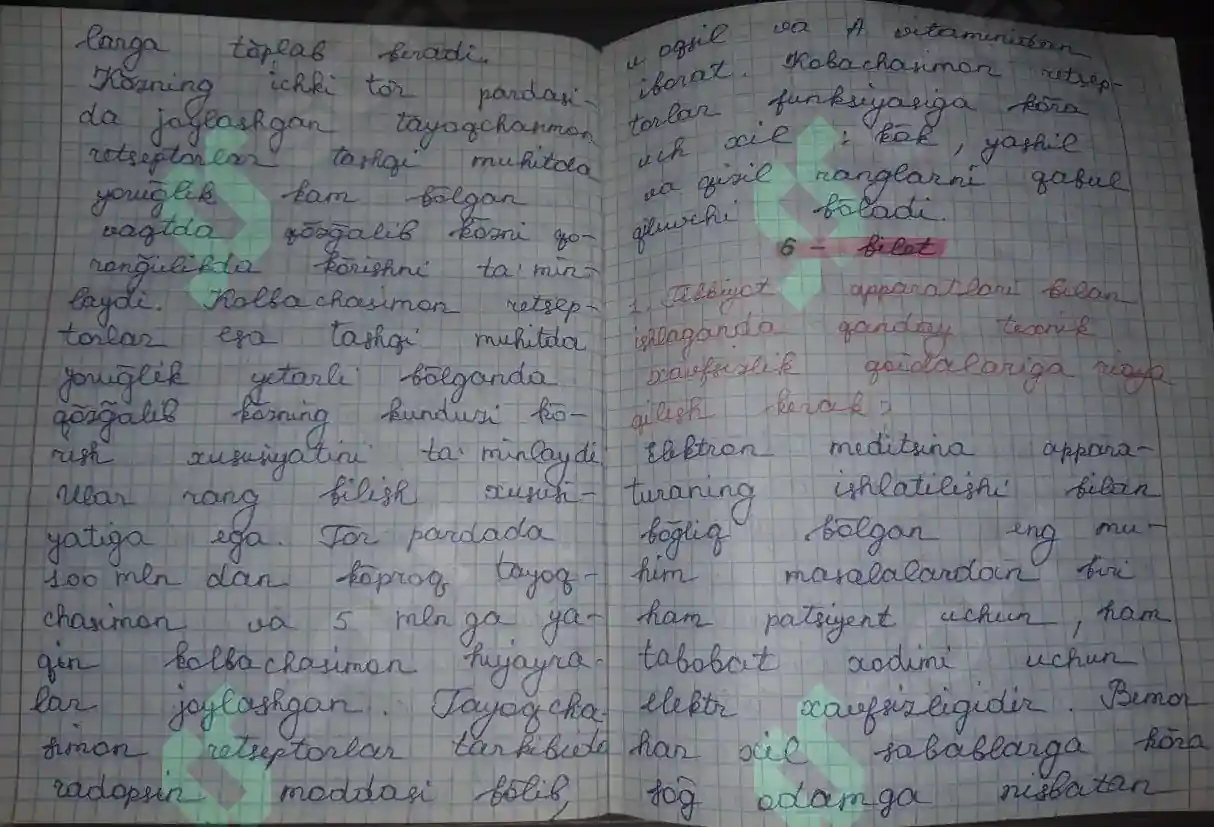 larga tōplab beradi.
Kōzning ichki tōr pardasi-
da joylashgan tayoqchasimon
retseptorlar tashqi muhitda
yorug̃lik kam bōlgan
vaqtda qōzg̃alib kōzni qo-
rong̃ulikda kōrishni ta'min-
laydi. Kolbachasimon retsep-
torlar esa tashqi muhitda
yorug̃lik yetarli bōlganda
qōzg̃alib kōzning kunduzi kō-
rish xususiyatini ta'minlaydi
Ular rang bilish xususi-
yatiga ega. Tōr pardada
100 mln dan kōproq tayoq-
chasimon va 5 mln ga ya-
qin kolbachasimon hujayra-
lar joylashgan. Tayoqcha-
simon retseptorlar tarkibida
radopsin moddasi bōlib,
u oqsil va A vitaminidan
iborat. Kobachasimon retsep-
torlar funksiyasiga kōra
uch xil : kōk, yashil
va qizil ranglarni qabul
qiluvchi bōladi.
6 - bilet
1. Tibbiyot apparatlari bilan
ishlaganda qanday texnik
xavfsizlik qoidalariga rioya
qilish kerak?
Elektron meditsina appara-
turaning ishlatilishi bilan
bōgliq bōlgan eng mu-
him masalalardan biri
ham patsiyent uchun, ham
tabobat xodimi uchun
elektr xavfsizligidir. Bemor
har xil sabablarga kōra
sōg odamga nisbatan